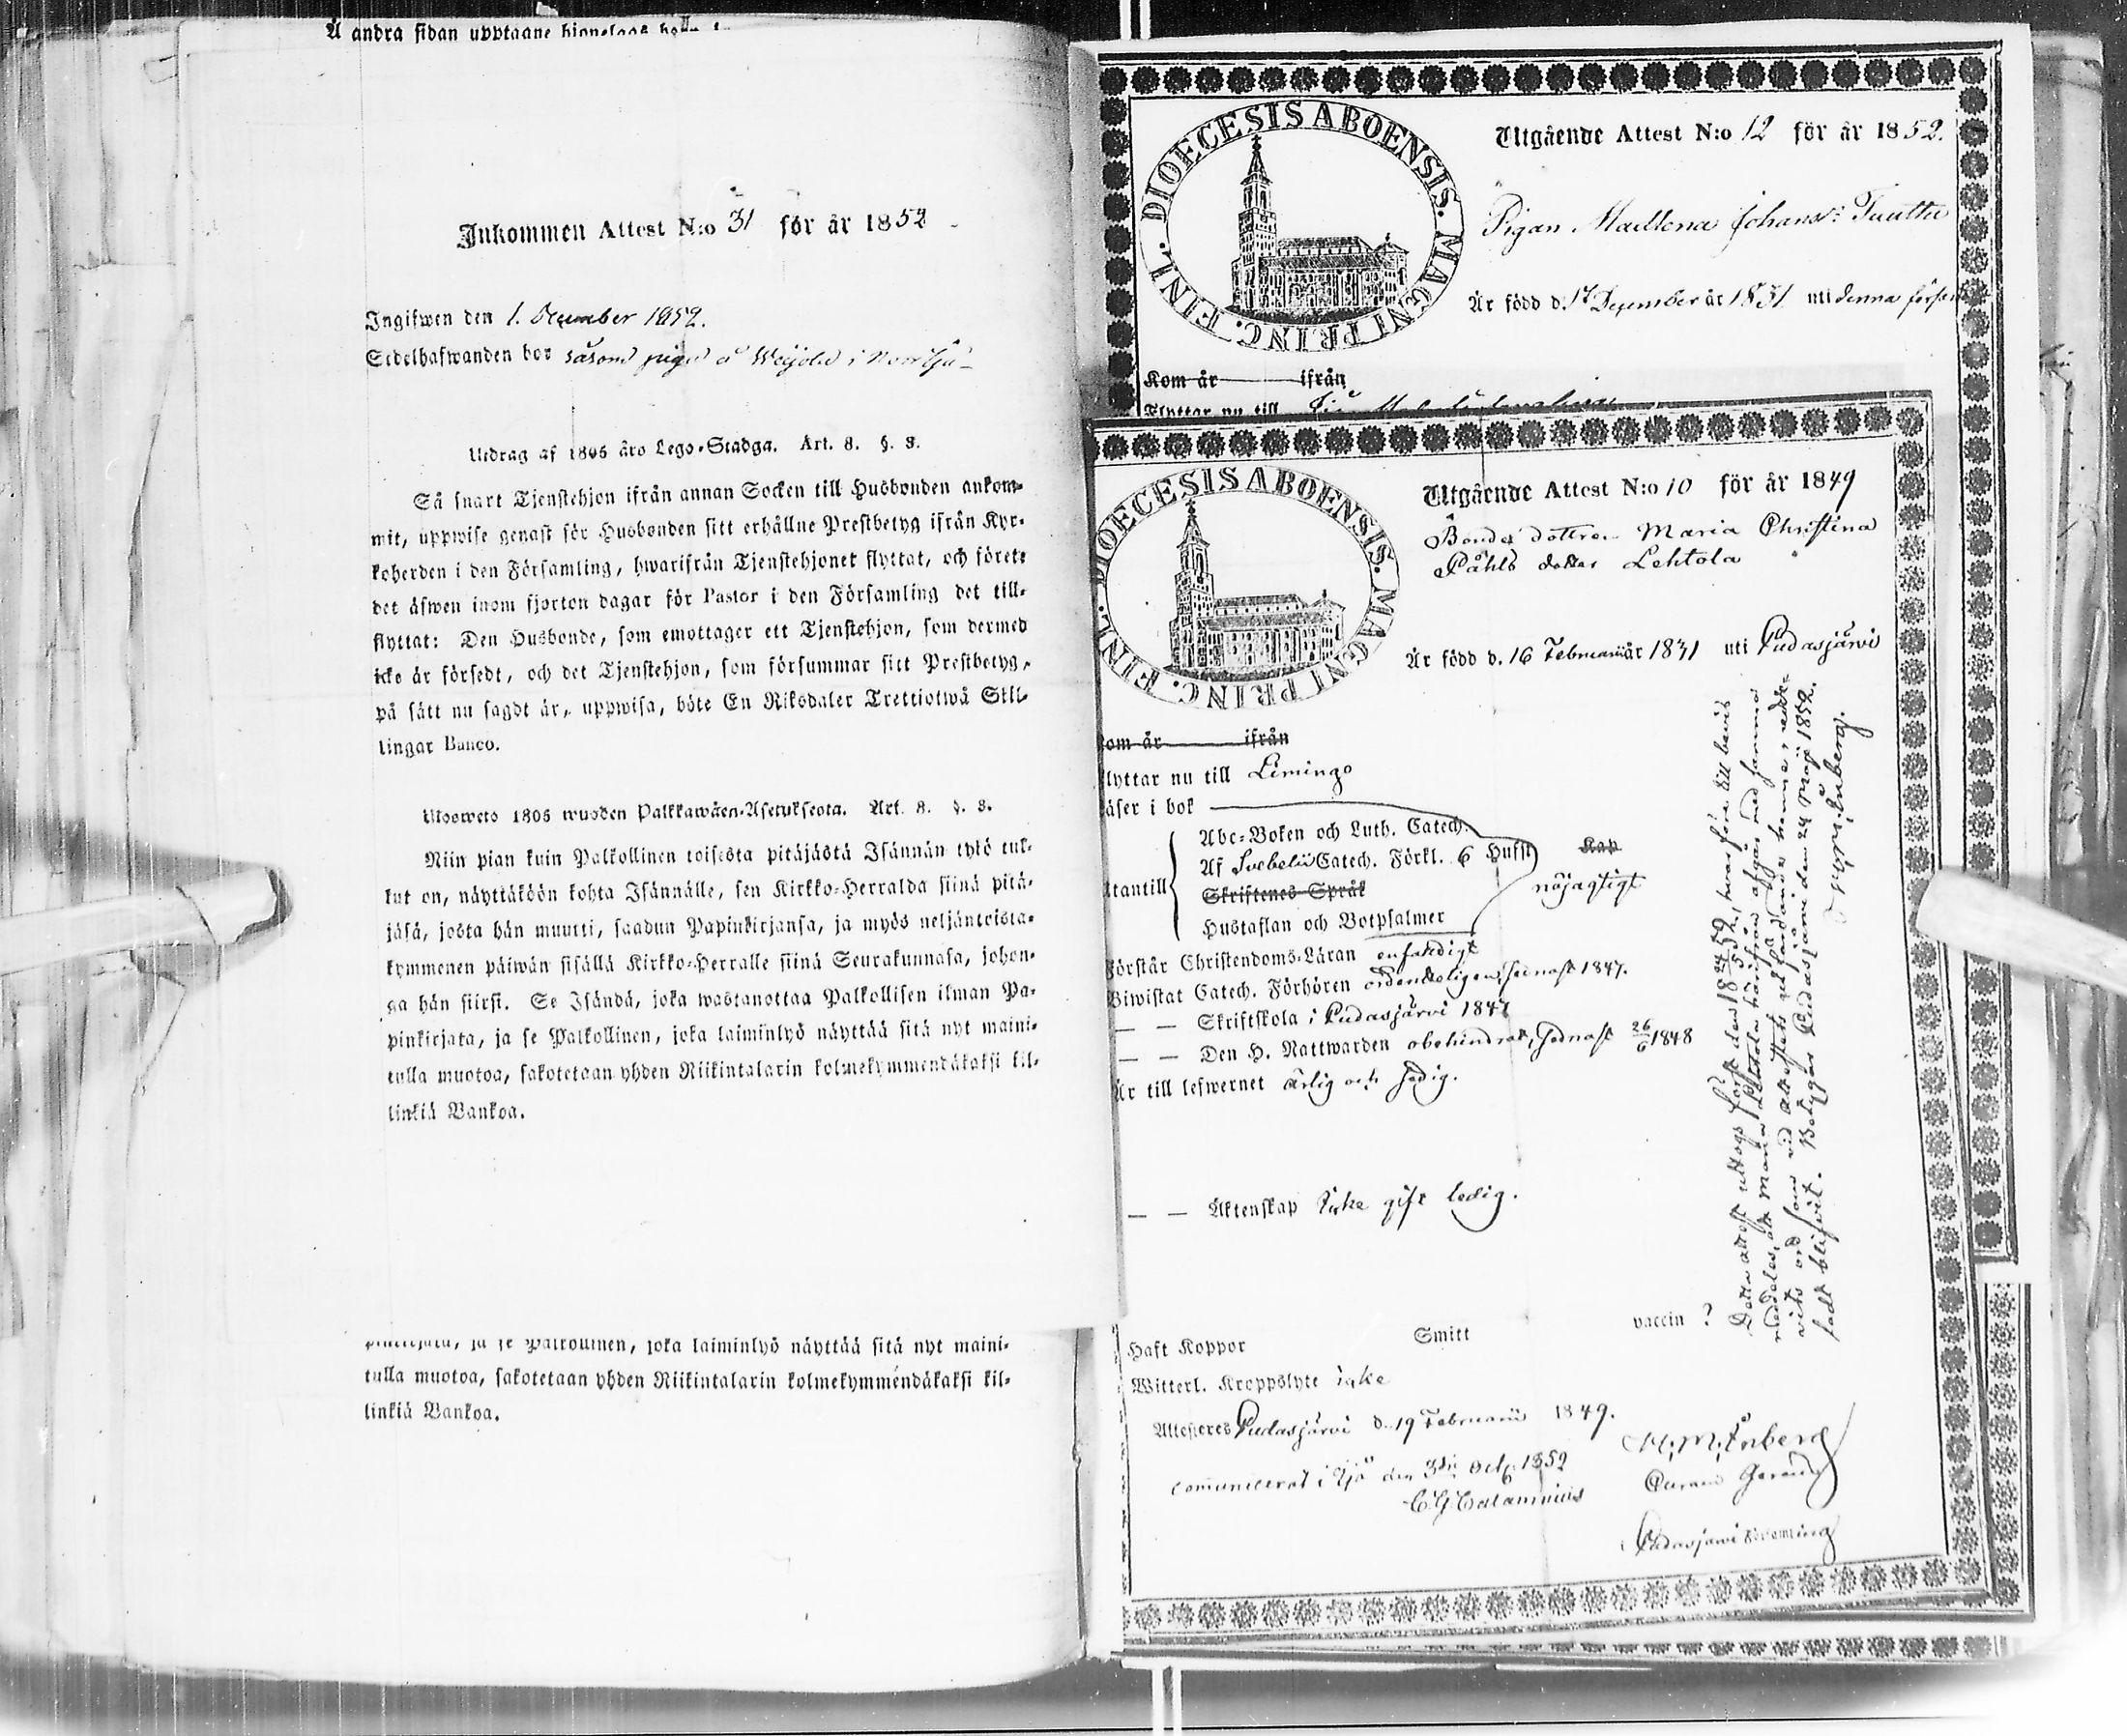 Å andra sidan upptagne hjonelags
Inkommen Attest N:o 31 för år 1852
Ingifwen den 1. December 1852.
Sedelhafwanden bor såsom piga å Weijola i Norr Ijo
Utdrag af 1805 års Lego-Stadga. Art. 8. §. 3.
Så snart Tjenstehjon ifrån annan Socken till Husbonden ankom-
mit, uppwise genast för Husbonden sitt erhållne Prestbetyg ifrån Kyr-
koherden i den Församling, hwarifrån Tjenstehjonet flyttat, och förete
det äfwen inom fjorton dagar för Pastor i den Församling det till-
flyttat: Den Husbonde, som emottager ett Tjenstehjon, som dermed
icke är försedt, och det Tjenstehjon, som försummar sitt Prestbetyg,
på sätt nu sagdt är, uppwisa, böte En Riksdaler Trettiotwå Skil-
lingar Banco.
Ulosweto 1805 wuoden Palkkawäen-Asetuksesta. Art. 8. §. 3.
Niin pian kuin Palkollinen toisesta pitäjästä Isännän tykö tul-
lut on, näyttäköön kohta Isännälle, sen Kirkko-Herralda siinä pitä-
jäsä, josta hän muutti, saadun Papinkirjansa, ja myös neljäntoista-
kymmenen päiwän sisällä Kirkko-Herralle siinä Seurakunnasa, johon-
ga hän siirsi. Se Isändä, joka wastanottaa Palkollisen ilman Pa-
pinkirjata, ja se Palkollinen, joka laiminlyö näyttää sitä nyt maini-
tulla muotoa, sakotetaan yhden Riikintalarin kolmekymmendäkaksi kil-
linkiä Bankoa.
pinkirjata, ja se Palkollinen, joka laiminlyö näyttää sitä nyt maini-
tulla muotoa, sakotetaan yhden Riikintalarin kolmekymmendäkaksi kil-
linkiä Bankoa.
DIOECESIS ABOENSIS. MAGNI PRINC. FINL.
Utgående Attest N:o 12 för år 1852.
Pigan Madlena Johans: Tuuttu
Är född d. 17 December år 1831 uti denna förs
Kom år ifrån
Flyttar nu till
DIOECESIS ABOENSIS. MAGNI PRINC. FINL.
Utgående Attest N:o 10 för år 1849
Bonde dottren Maria Christina
Påhls dotter Lehtola
Är född d. 16 Februarii år 1831 uti Pudasjärvi
om år ifrån
lyttar nu till Limingo
äser i bok
Abc-Boken och Luth. Catech.
Af Svebelii Catech. Förkl. 6 Hufst Kap
utantill Skriftenes Språk nöjagtigt
Hustaflan och Botpsalmer
Förstår Christendoms-Läran enfaldigt
Biwistat Catech. Förhören ordenteligen, sednast 1847.
— — Skriftskola i Pudasjärvi 1847
— — Den H. Nattwarden obehindrat, sednast 26/6 1848
Är till lefwernet ärlig och sedig.
— — Äktenskap icke gift ledig.
Haft Koppor Smitt vaccin ?
Witterl. Kroppslyte icke
Attesteres Pudasjärvi d. 19 Februarii 1849.
M: M: Enberg
communicerat i Ijo den 3die Oct. 1852
C G Calamnius
Pudasjärvi Församling
Detta attest uttogs först den 24/5 1852, hvarföre till bevis
meddeles, att Maria Lehtola härifrån afgår med samma
vits ord som vid attestets utfärdande henne redan
fadt blifvit. Betygar Pudasjärvi den 24 Maji 1852.
M: M: Enberg.